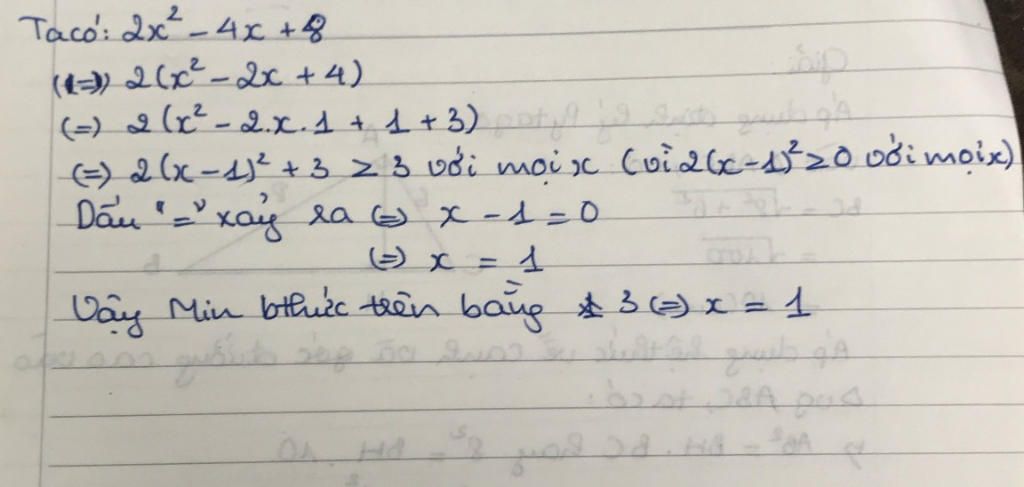 Ta có: 2x² - 4x + 8
(1=)) 2(x² - 2x + 4)
(=) 2(x² - 2.x.1 + 1 + 3)
(=) 2(x-1)² + 3 ≥ 3 với mọi x (vì 2(x-1)² ≥ 0 với mọi x)
Dấu "=" xảy ra (=) x - 1 = 0
(=) x = 1
Vậy Min bthức trên bằng 3 (=) x = 1